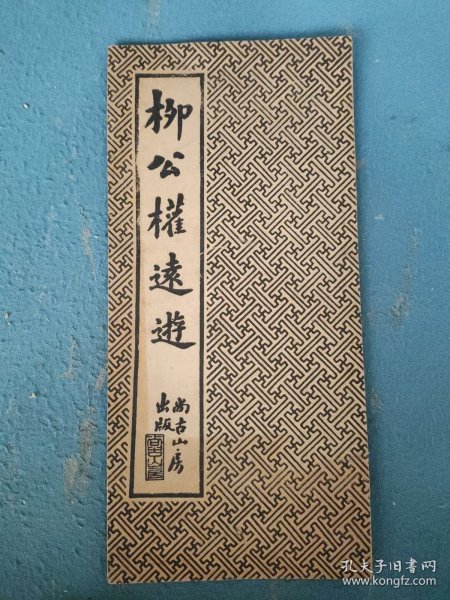 柳公權遠遊
尚古山房
出版
孔夫子旧书网
www.kongfz.com